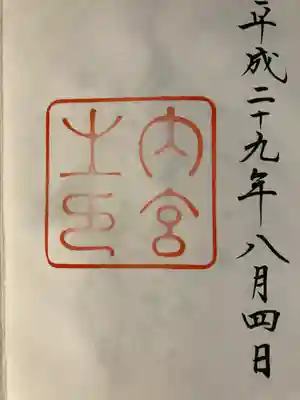 平成二十九年八月四日
内宮
之印